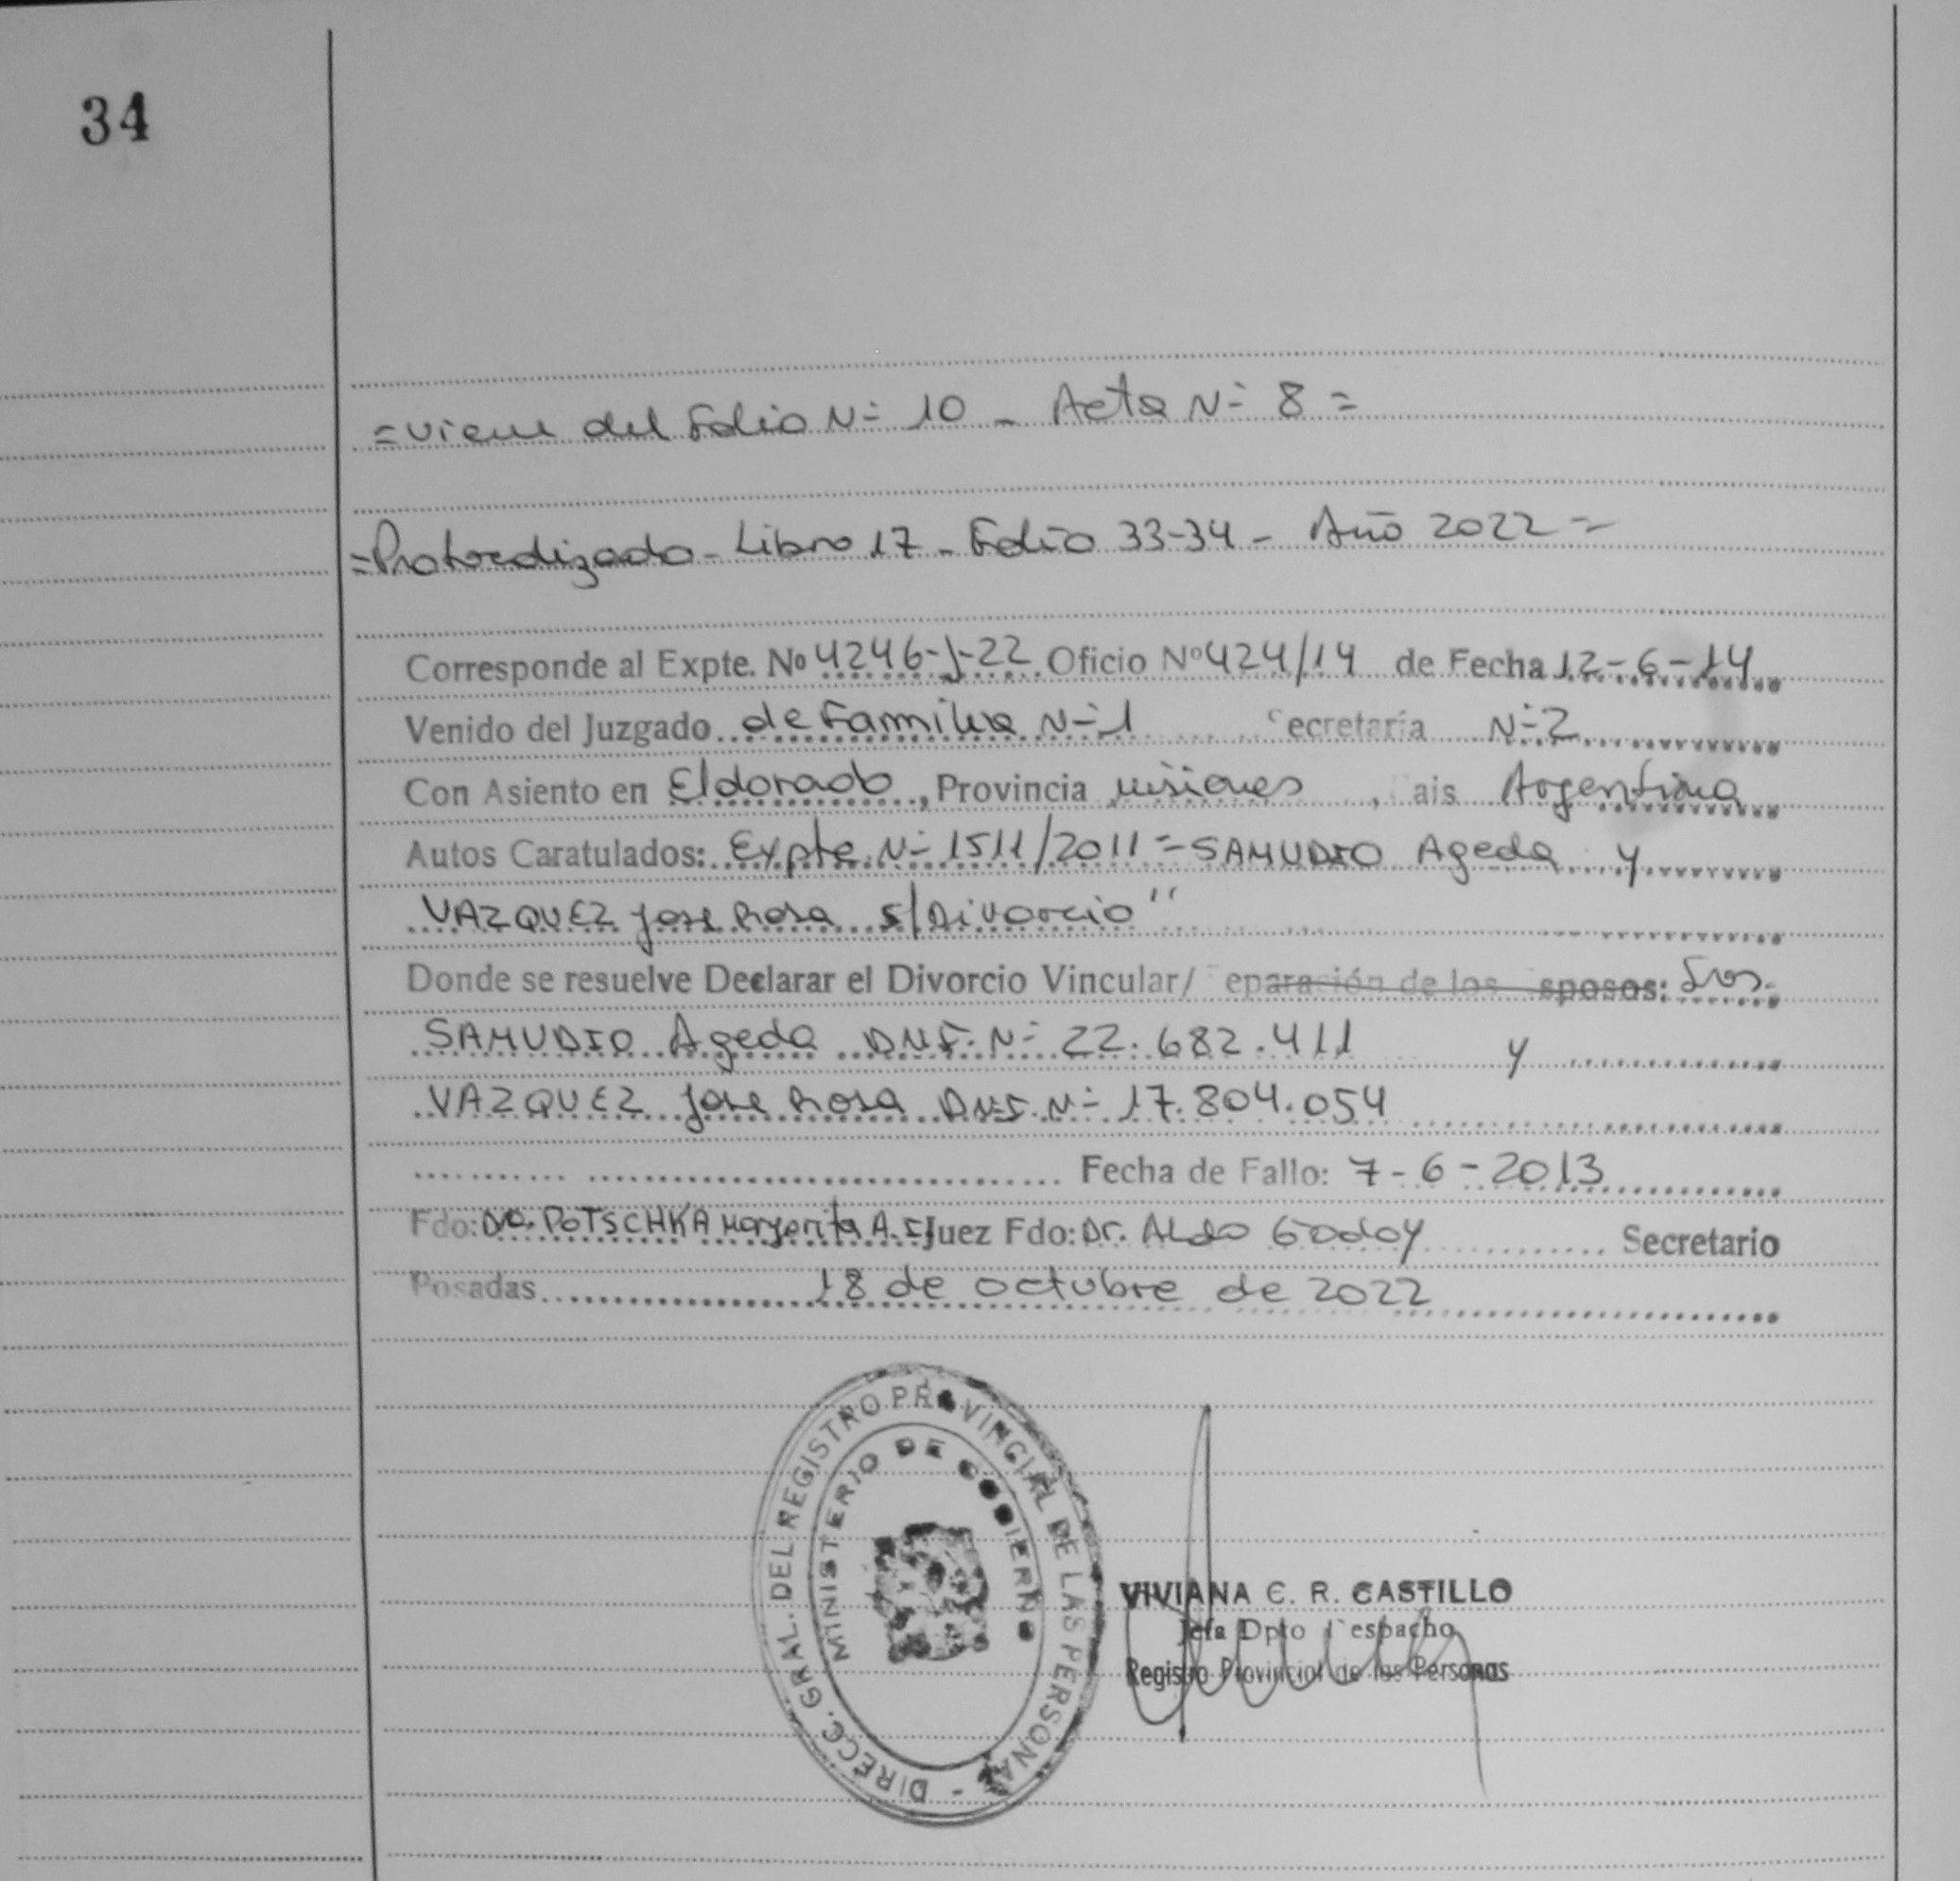 34
=Viene del Folio N= 10 - Acta N= 8 =
=Protocolizado - Libro 17 - Folio 33-34 - Año 2022 =
Corresponde al Expte. Nº 4246-J-22 Oficio Nº 424/14 de Fecha 12-6-14
Venido del Juzgado de Familia N=1 ecretaría N=2
Con Asiento en Eldorado, Provincia misiones, ais Argentina
Autos Caratulados: Expte. N= 1511/2011 = SAMUDIO Ageda y
VAZQUEZ Jose Rosa s/Divorcio"
Donde se resuelve Declarar el Divorcio Vincular/ eparación de los sposos: Sres.
SAMUDIO Ageda DNI. N= 22.682.411 y
VAZQUEZ Jose Rosa DNI. N= 17.804.054
Fecha de Fallo: 7-6-2013
Fdo: Dra. POTSCHKA Margarita A. I Juez Fdo: Dr. ALDO Godoy Secretario
Posadas 18 de octubre de 2022
DIRECC. GRAL. DEL REGISTRO PROVINCIAL DE LAS PERSONAS -
MINISTERIO DE GOBIERNO
VIVIANA C. R. CASTILLO
Jefa Dpto Despacho
Registro Provincial de las Personas